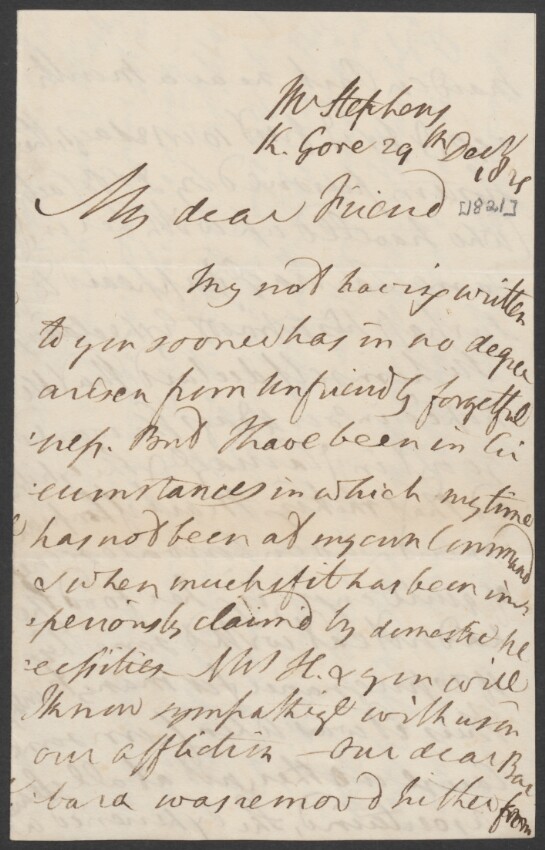 Mr Stephens
K. Gore 29th Decr
1821
My dear Friend [1821]
My not having written
to you sooner has in no degree
arisen from Unfriendly forgetful
:ness. But I have been in Cir
:cumstances in which my time
has not been at my own Command
& when much of it has been im
:periously claimd by domestic Ne
:cessities Mrs H. & you will
I know sympathize with us in
our affliction - Our dear Bar
:bara was remov'd hither from